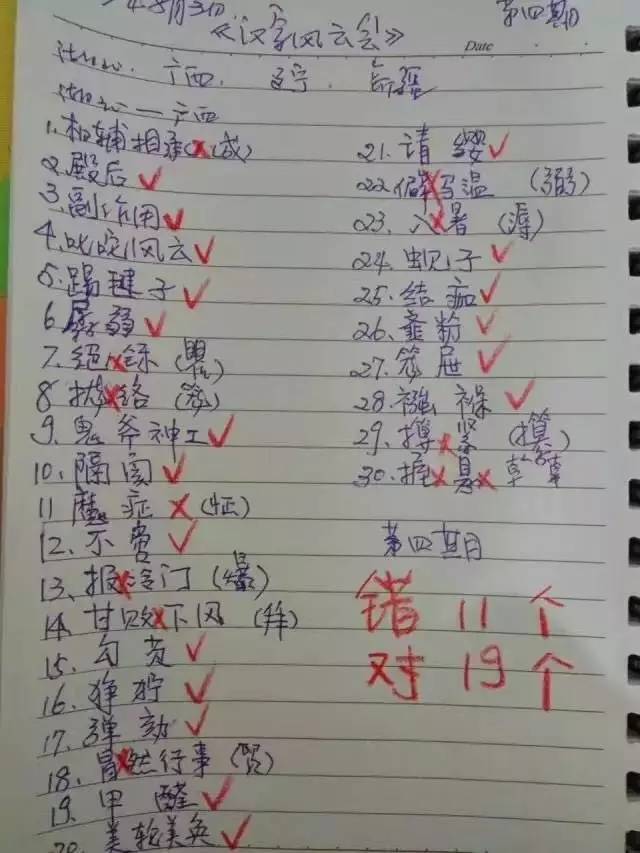 年8月3日 第四期
《汉字风云会》
Date
广西. 辽宁. 新疆
——广西
1.相辅相承(成)
2.殿后
3.副作用
4.叱咤风云
5.踢毽子
6.孱弱
7.
8.拢络(笼)
9.鬼斧神工
10.隔阂
11.症(怔)
12.不啻
13.报冷门(爆)
14.甘败下风(拜)
15.勾芡
16.狰狞
17.弹劾
18.冒然行事(贸)
19.甲醛
20.美轮美奂
21.请缨
22.马温(弼)
23.入暑(溽)
24.蚬子
25.结痂
26.齑粉
27.笼屉
28.襁褓
29.
30.
第四期
错11个
对19个